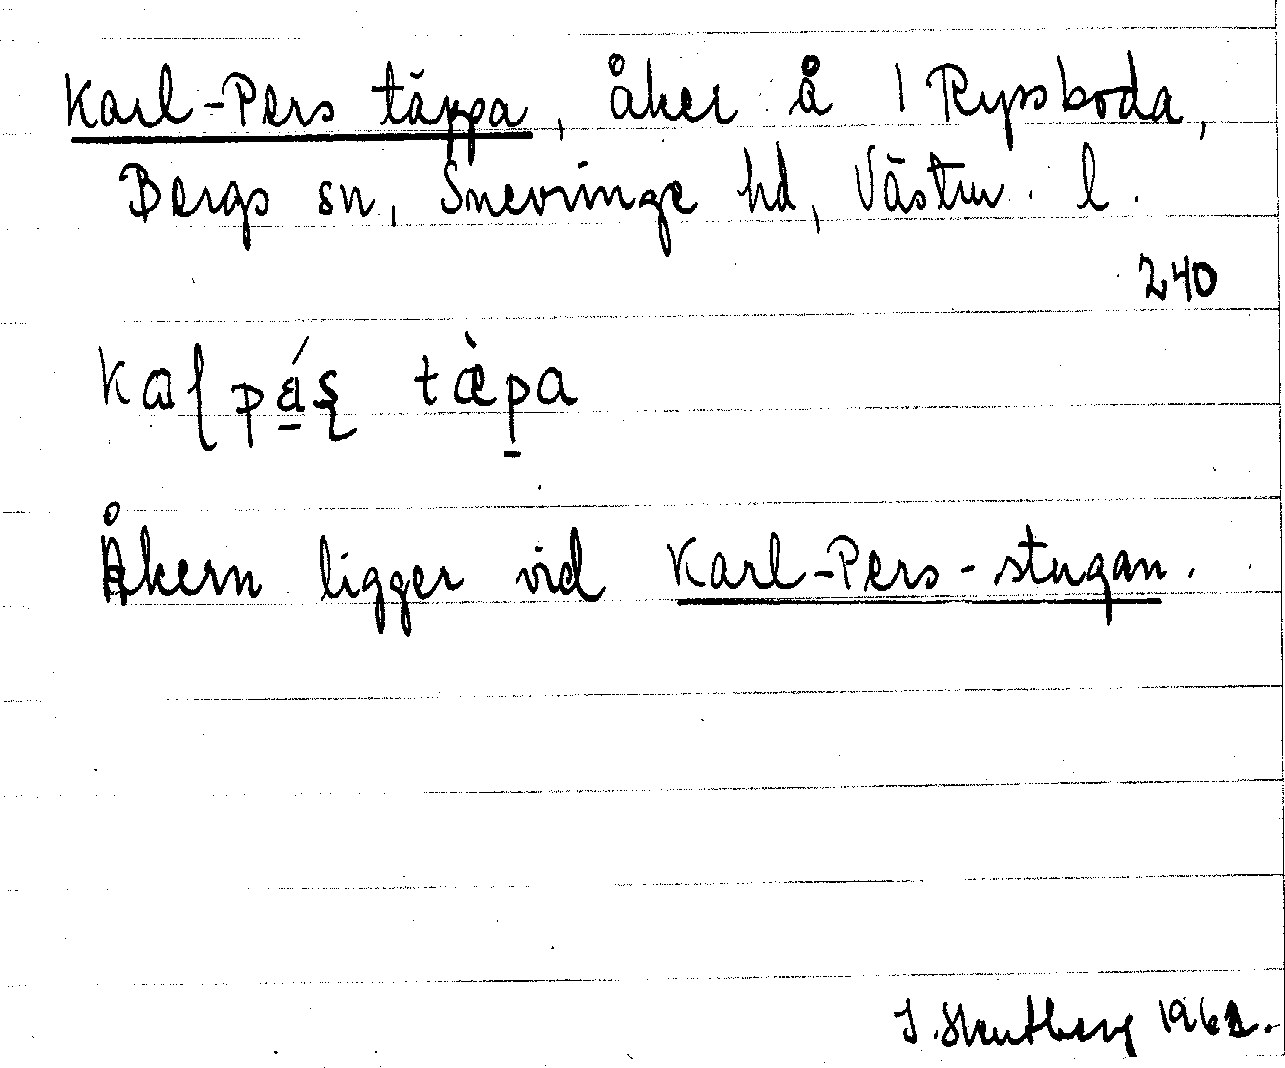 Karl-Pers täppa, åker å 1 Ryssboda,
Bergs sn, Snevringe hd, Västm. l.
240
kaɭpá̱ʂ tæ̀p̱a
Åkern ligger vid Karl-Pers-stugan.
1962.